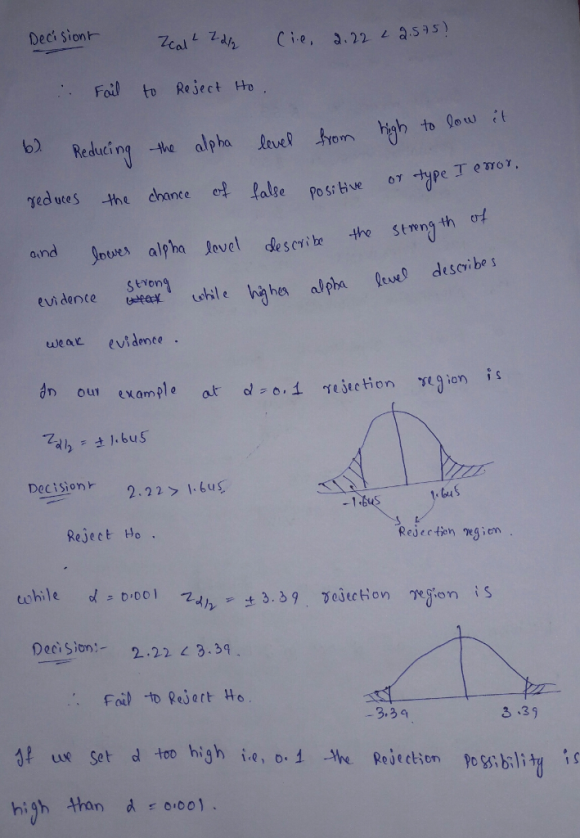 Decision:- Zcal < Zα/2 (i.e, 2.22 < 2.575)
∴ Fail to Reject Ho.
b) Reducing the alpha level from high to low it
reduces the chance of false positive or type I error.
and lower alpha level describe the strength of
evidence strong while higher alpha level describes
weak evidence.
In our example at α = 0.1 rejection region is
Zα/2 = ± 1.645
Decision:- 2.22 > 1.645
-1.645 1.645
Reject Ho.
Rejection region.
while α = 0.001 Zα/2 = ± 3.39 rejection region is
Decision:- 2.22 < 3.39.
∴ Fail to Reject Ho.
-3.39 3.39
If we set α too high i.e, 0.1 the Rejection possibility is
high than α = 0.001.